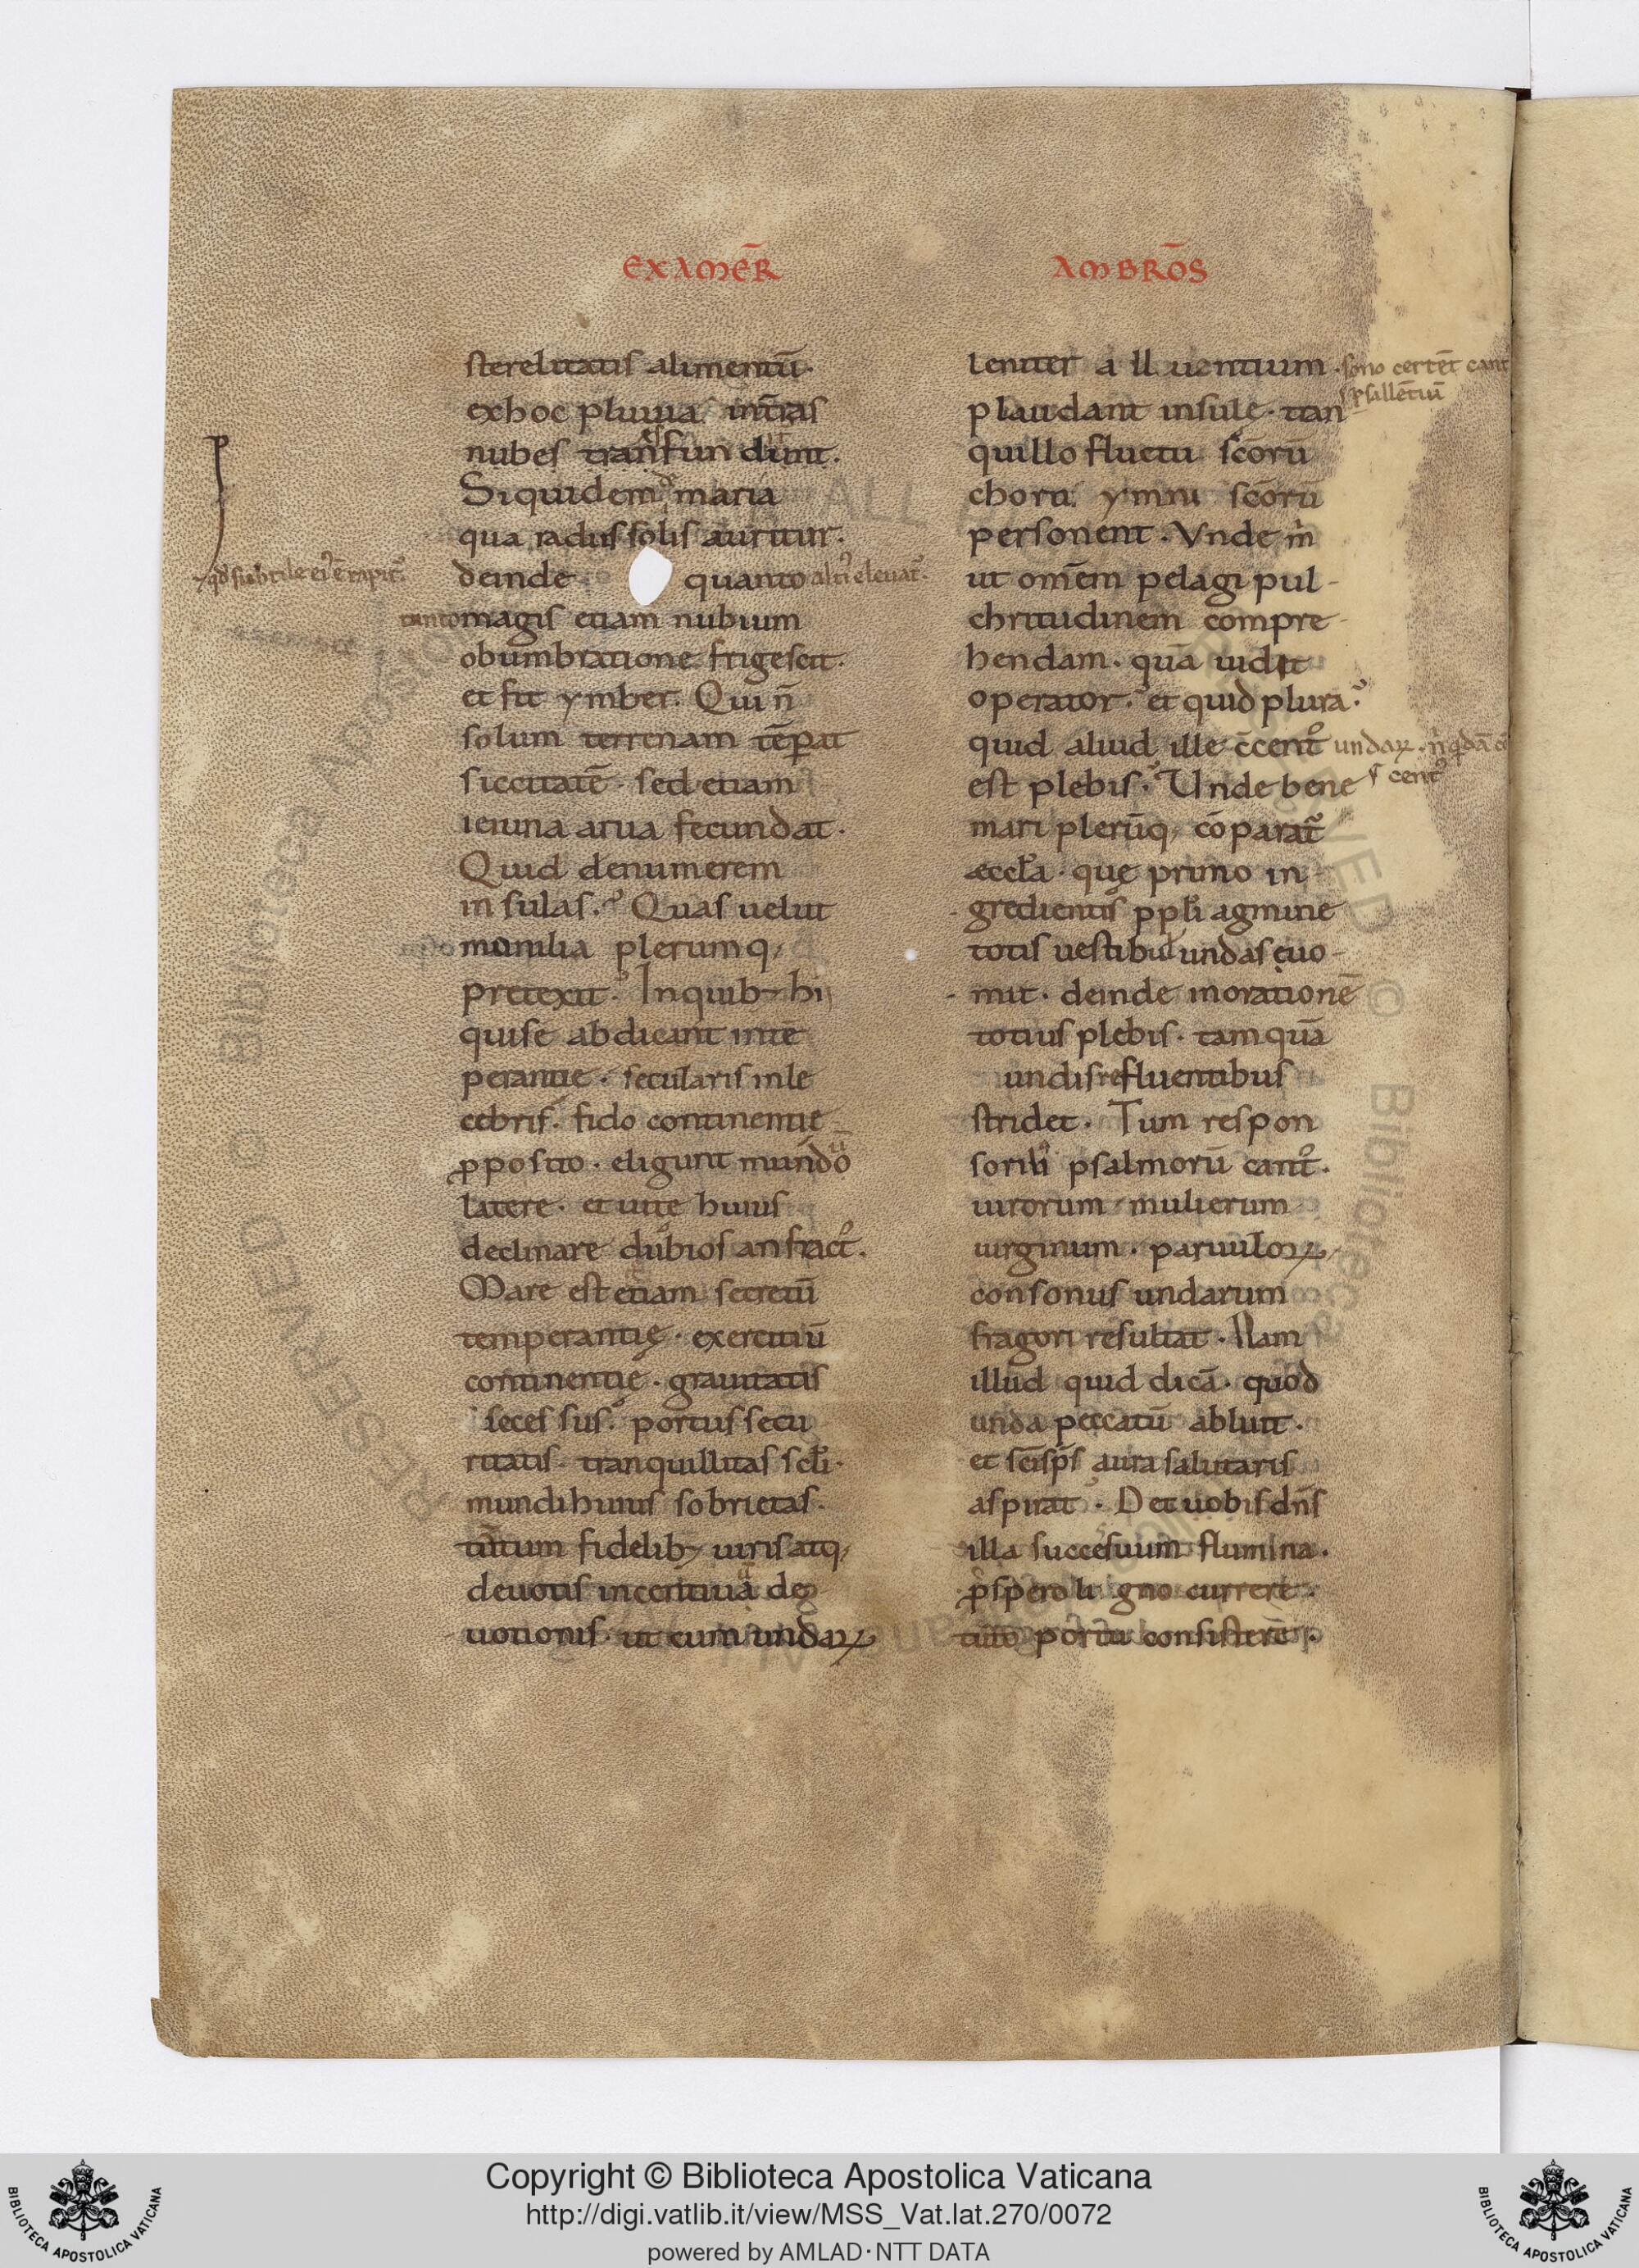 EXAMER̄
AMBRŌS
sterelitatis alimentū·
exhoc pluuia intras
nubes transfundunt.
Siquidem maria
qua radiis solis auritur.
qd̄ subtile ei ē rapit̃·
deinde quanto altꝰ eleuat̃·
tanto magis etiam nubium
obumbratione frigescit.
et fit ymber. Qui n̄
solum terrenam tēperat
siccitatē· sed etiam
ieiuna arua fecundat·
Quid denumerem
insulas. Quas uelut
monilia plerumq;
pretexit. Inquib; hi
quise abdicant intē
perantie· secularis inle
cebris. fido continentie
ꝓposito· eligunt mundo
latere· et uite huius
declinare dubios anfractꝰ.
Mare est etiam secretū
temperantię· exercitiū
continentię· grauitatis
seces sus. portus secu
ritatis· tranquillitas scl̄i·
mundi huius sobrietas·
tūtum fidelib; uiris atq;
deuotis incentiuā de
uotionis· ut cum undaꝝ
leniter alluentium· sono certēt cant
psallētiū
plaudant insulę· tran
quillo fluctu scōrū
chori ymni scōrū
personent. Vnde m̄
ut omēm pelagi pul-
chritudinem compre-
hendam· quā uidit
operator. et quid plura·
quid aliud ille c̄centꝰ undaꝝ· n̄ qdā
centꝰ
est plebis. Unde bene
mari plerūq; cōparat̃
eccl̄a· quę primo in-
gredientis ppl̄i agmine
totis uestibul undas euo-
mit· deinde inoratione
totius plebis· tamquā
undis refluentibus
stridet· Tum respon
soriis psalmorū cantꝰ.
uirorum mulierum
uirginum· paruuloꝝ
consonus undarum
fragori resultat. Nam
illud quid dicā· quod
unda peccatū abluit.
et sc̄i sp̄s aura salutaris
aspirat. Det uobis dn̄s
illa succesuum flumina.
ꝓspero ligno currere.
tuto portu consistere.
Copyright © Biblioteca Apostolica Vaticana
http://digi.vatlib.it/view/MSS_Vat.lat.270/0072
powered by AMLAD·NTT DATA